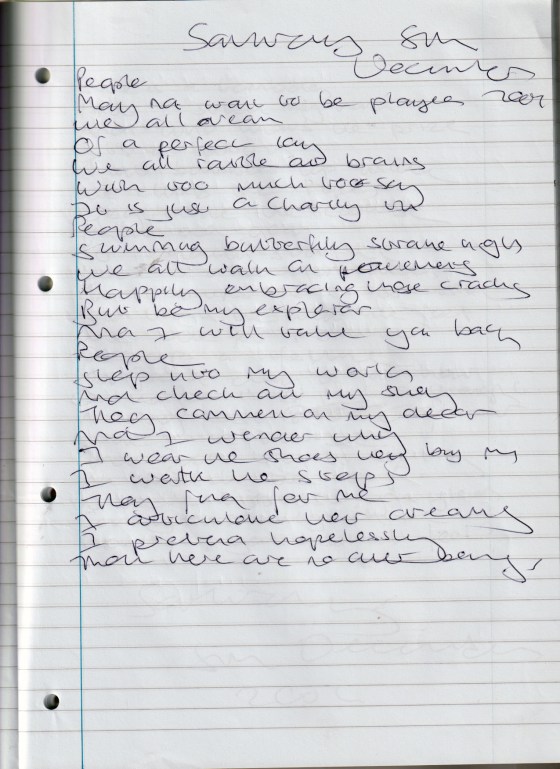 Saturday 8th
December
People 2007
May not want to be played
We all dream
Of a perfect
We all our brains
With too much to say
It is just a
People
Swimming butterfly stroke
We all walk on pavements
Happily embracing those cracks
But be my explorer
And I will take you back
People
Step into my world
And check out my
They comment on my decor
And I wonder why
I wear the shoes they buy me
I walk the steps
They for me
I articulate their dreams
I pretend hopelessly
That there are no other beings,